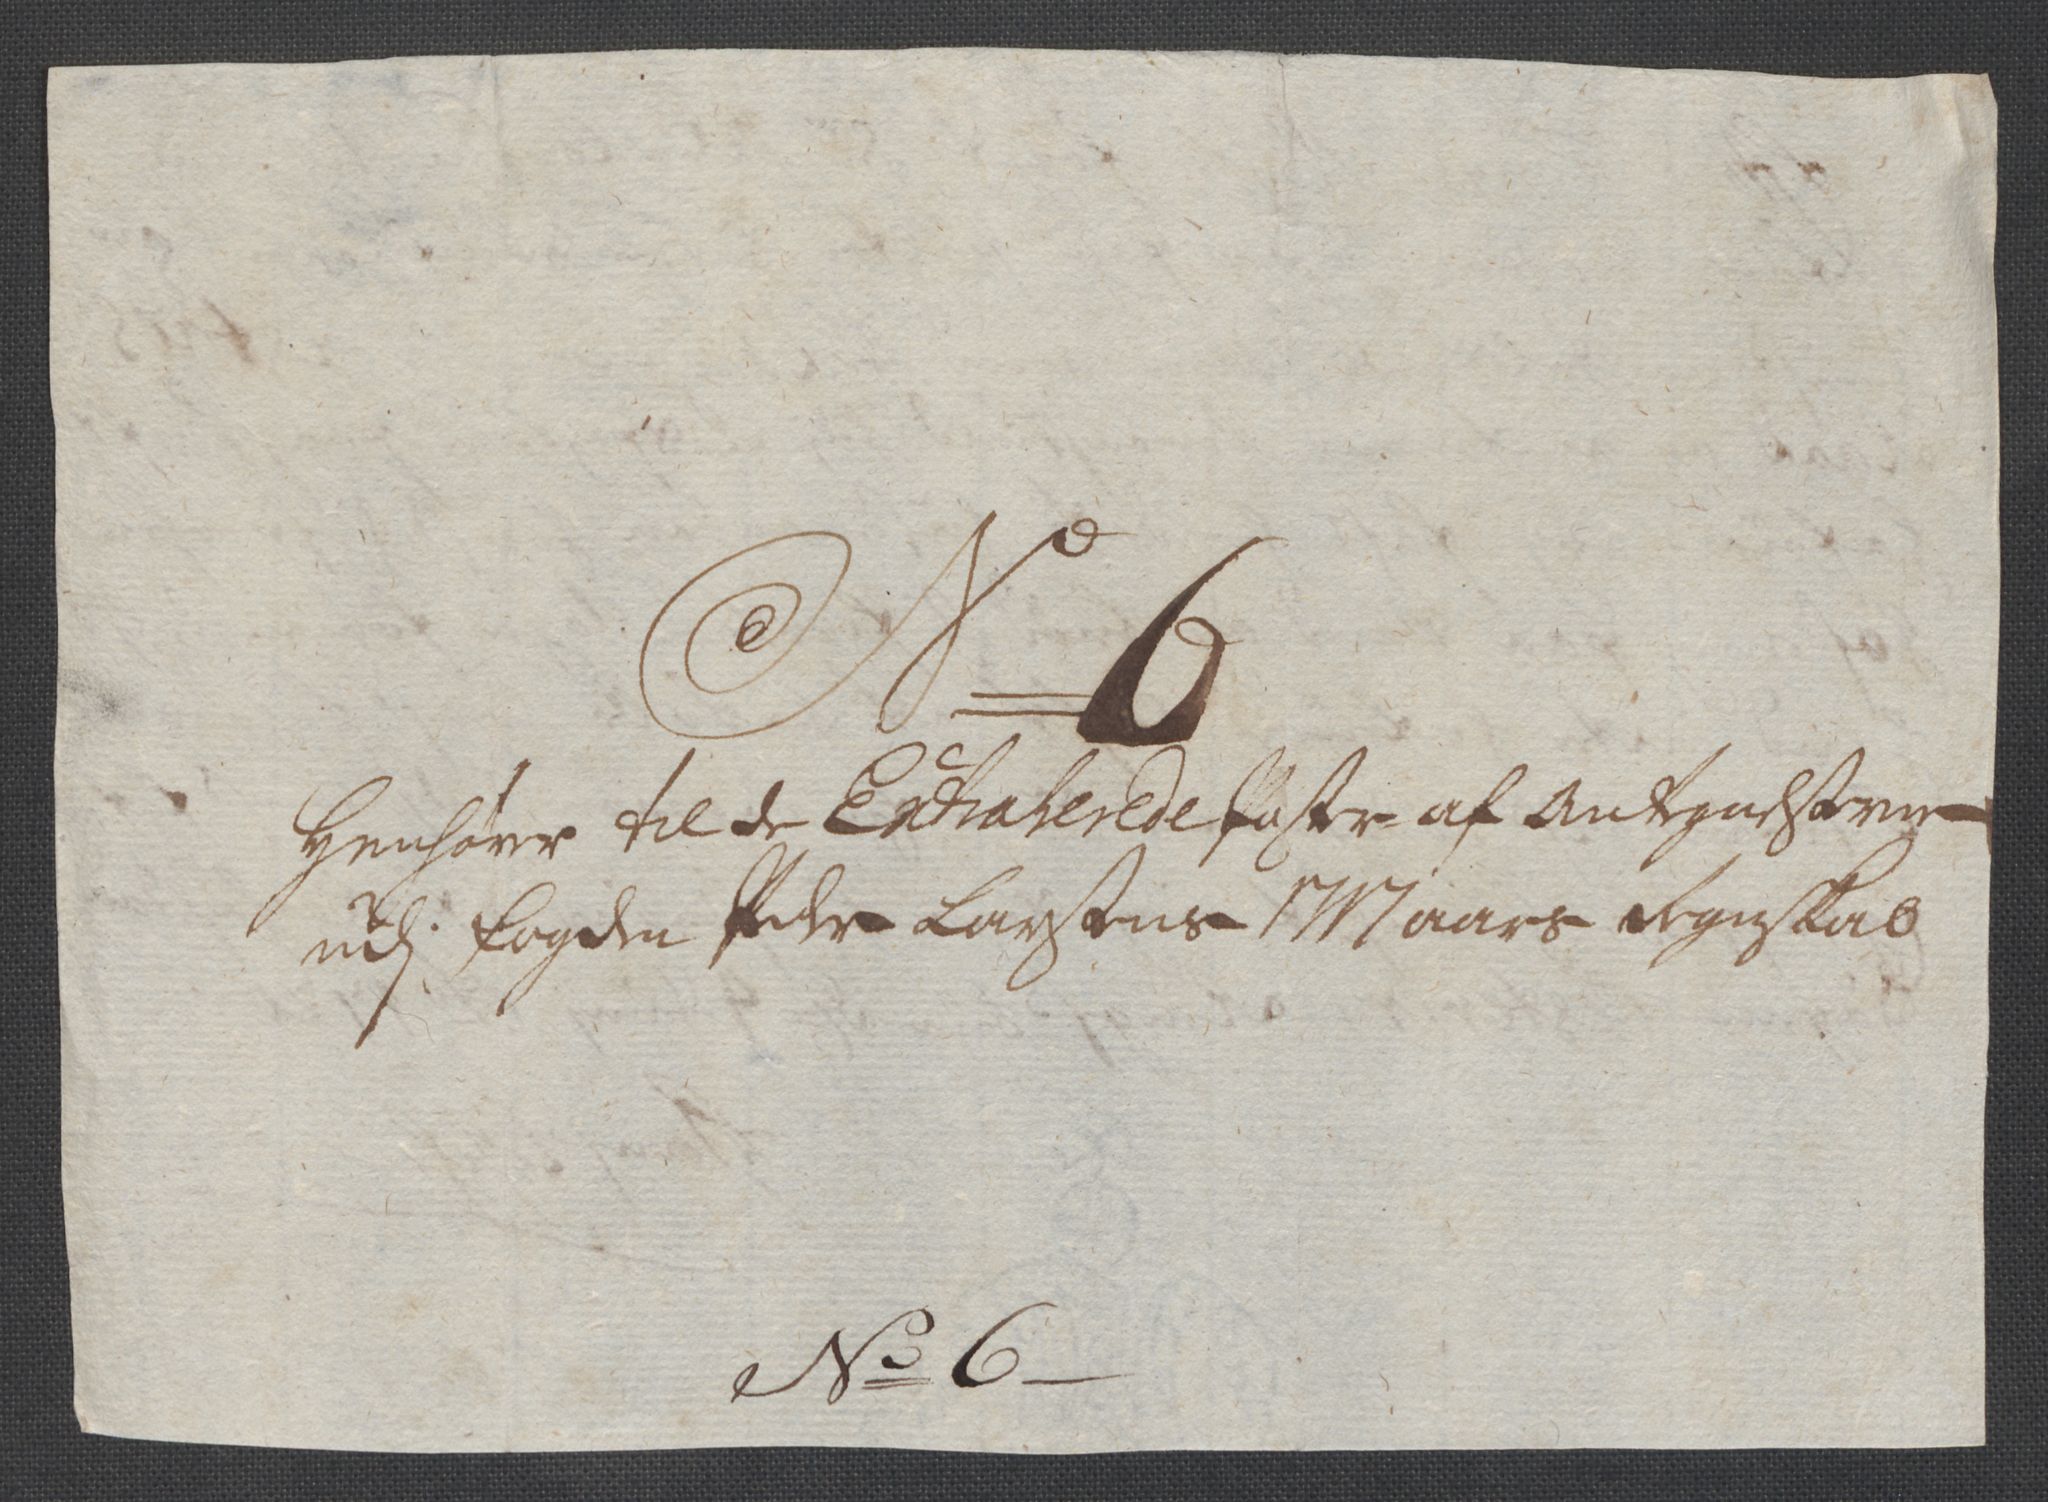 No 6
Henhører til de Extraherede Poster af Antegnelserne
udj fogden Peder Larsens Maars Regnskab
No 6